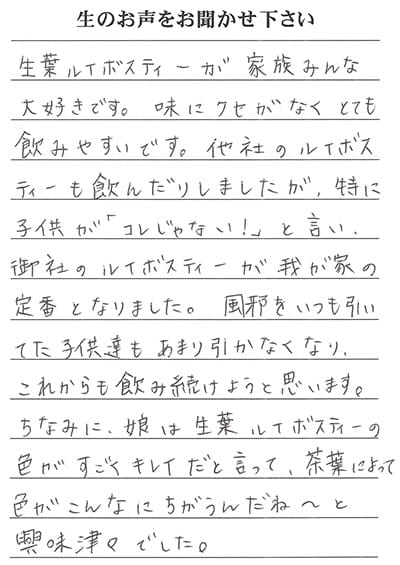 生のお声をお聞かせ下さい
生葉ルイボスティーが家族みんな
大好きです。味にクセがなくとても
飲みやすいです。他社のルイボス
ティーも飲んだりしましたが、特に
子供が「コレじゃない!」と言い、
御社のルイボスティーが我が家の
定番となりました。風邪をいつも引い
てた子供達もあまり引かなくなり、
これからも飲み続けようと思います。
ちなみに、娘は生葉ルイボスティーの
色がすごくキレイだと言って、茶葉によって
色がこんなにちがうんだね〜と
興味津々でした。